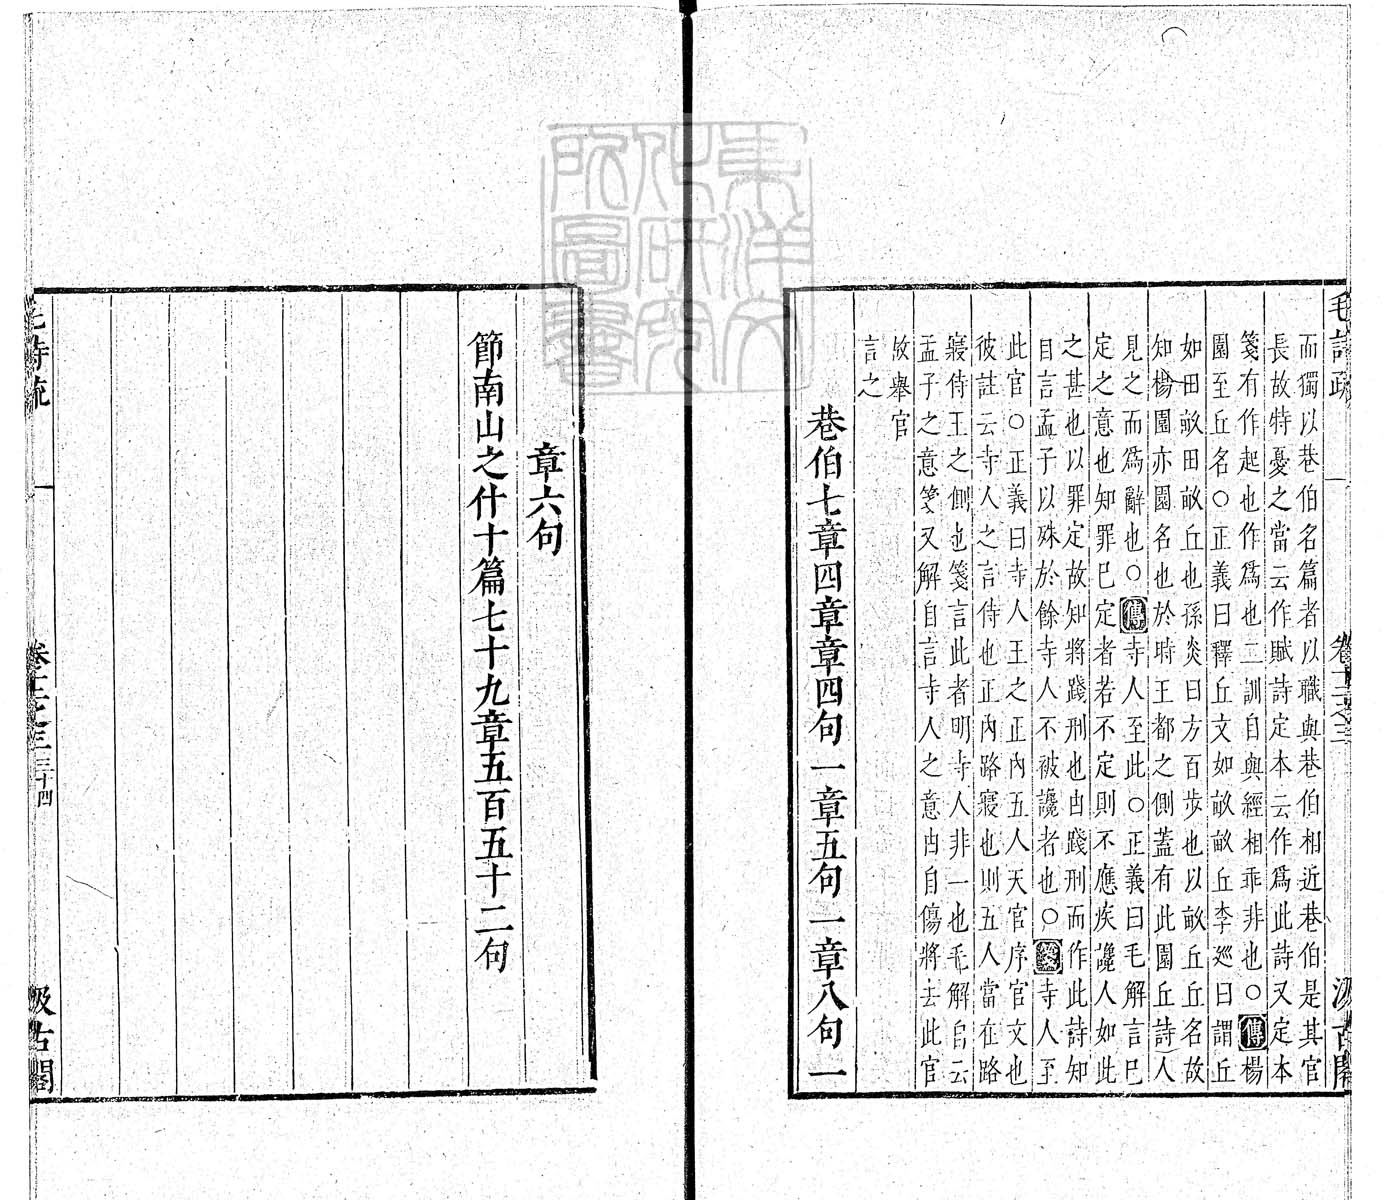 毛詩疏　卷十二之三　汲古閣
而獨以巷伯名篇者以職與巷伯相近巷伯是其官
長故特憂之當云作賦詩定本云作為此詩又定本
箋有作起也作爲也二訓自與經相乖非也○傳楊
園至丘名○正義曰釋丘文如畝畝丘李廵曰謂丘
如田畝田畝丘也孫炎曰方百步也以畝丘丘名故
知楊園亦園名也於時王都之側蓋有此園丘詩人
見之而爲辭也○傳寺人至此○正義曰毛解言巳
定之意也知罪巳定者若不定則不應疾讒人如此
之甚也以罪定故知將踐刑也由踐刑而作此詩知
自言孟子以殊於餘寺人不被讒者也○箋寺人至
此官○正義曰寺人王之正內五人天官序官文也
彼註云寺人之言侍也正內路寢也則五人當在路
寢侍王之側也箋言此者明寺人非一也毛解自云
孟子之意箋又解自言寺人之意由自傷將去此官
故舉官
言之
巷伯七章四章章四句一章五句一章八句一
章六句
節南山之什十篇七十九章五百五十二句
毛詩疏　卷十二之三　三十四　汲古閣
東洋文化研究所圖書